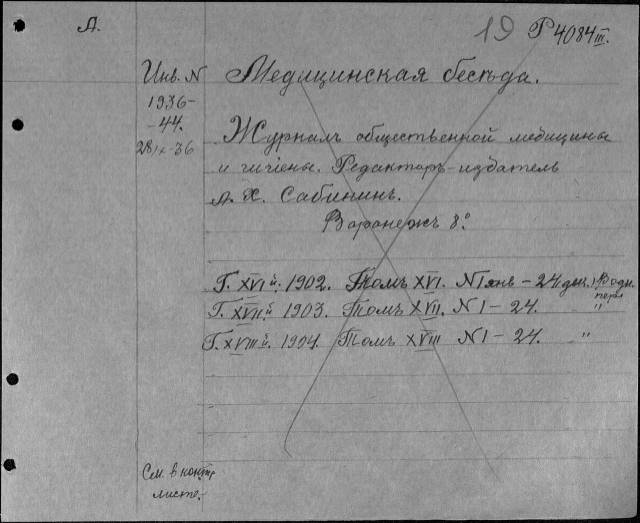 Д.
19 Р 4084 III.
Инв. N
1936-
-44.
28/X-36
Медицинская бесѣда.
Журналъ общественной медицины
и гигіены. Редакторъ-издатель
А. Х. Сабининъ.
Воронежъ 8º
Г. XVI й. 1902. Томъ XVI. N 1 янв - 24 дек. 1 Водн. пер.
Г. XVII й 1903. Томъ XVII. N 1 - 24. "
Г. XVIII й. 1904. Томъ XVIII N 1 - 24. "
См. в контр
листе.